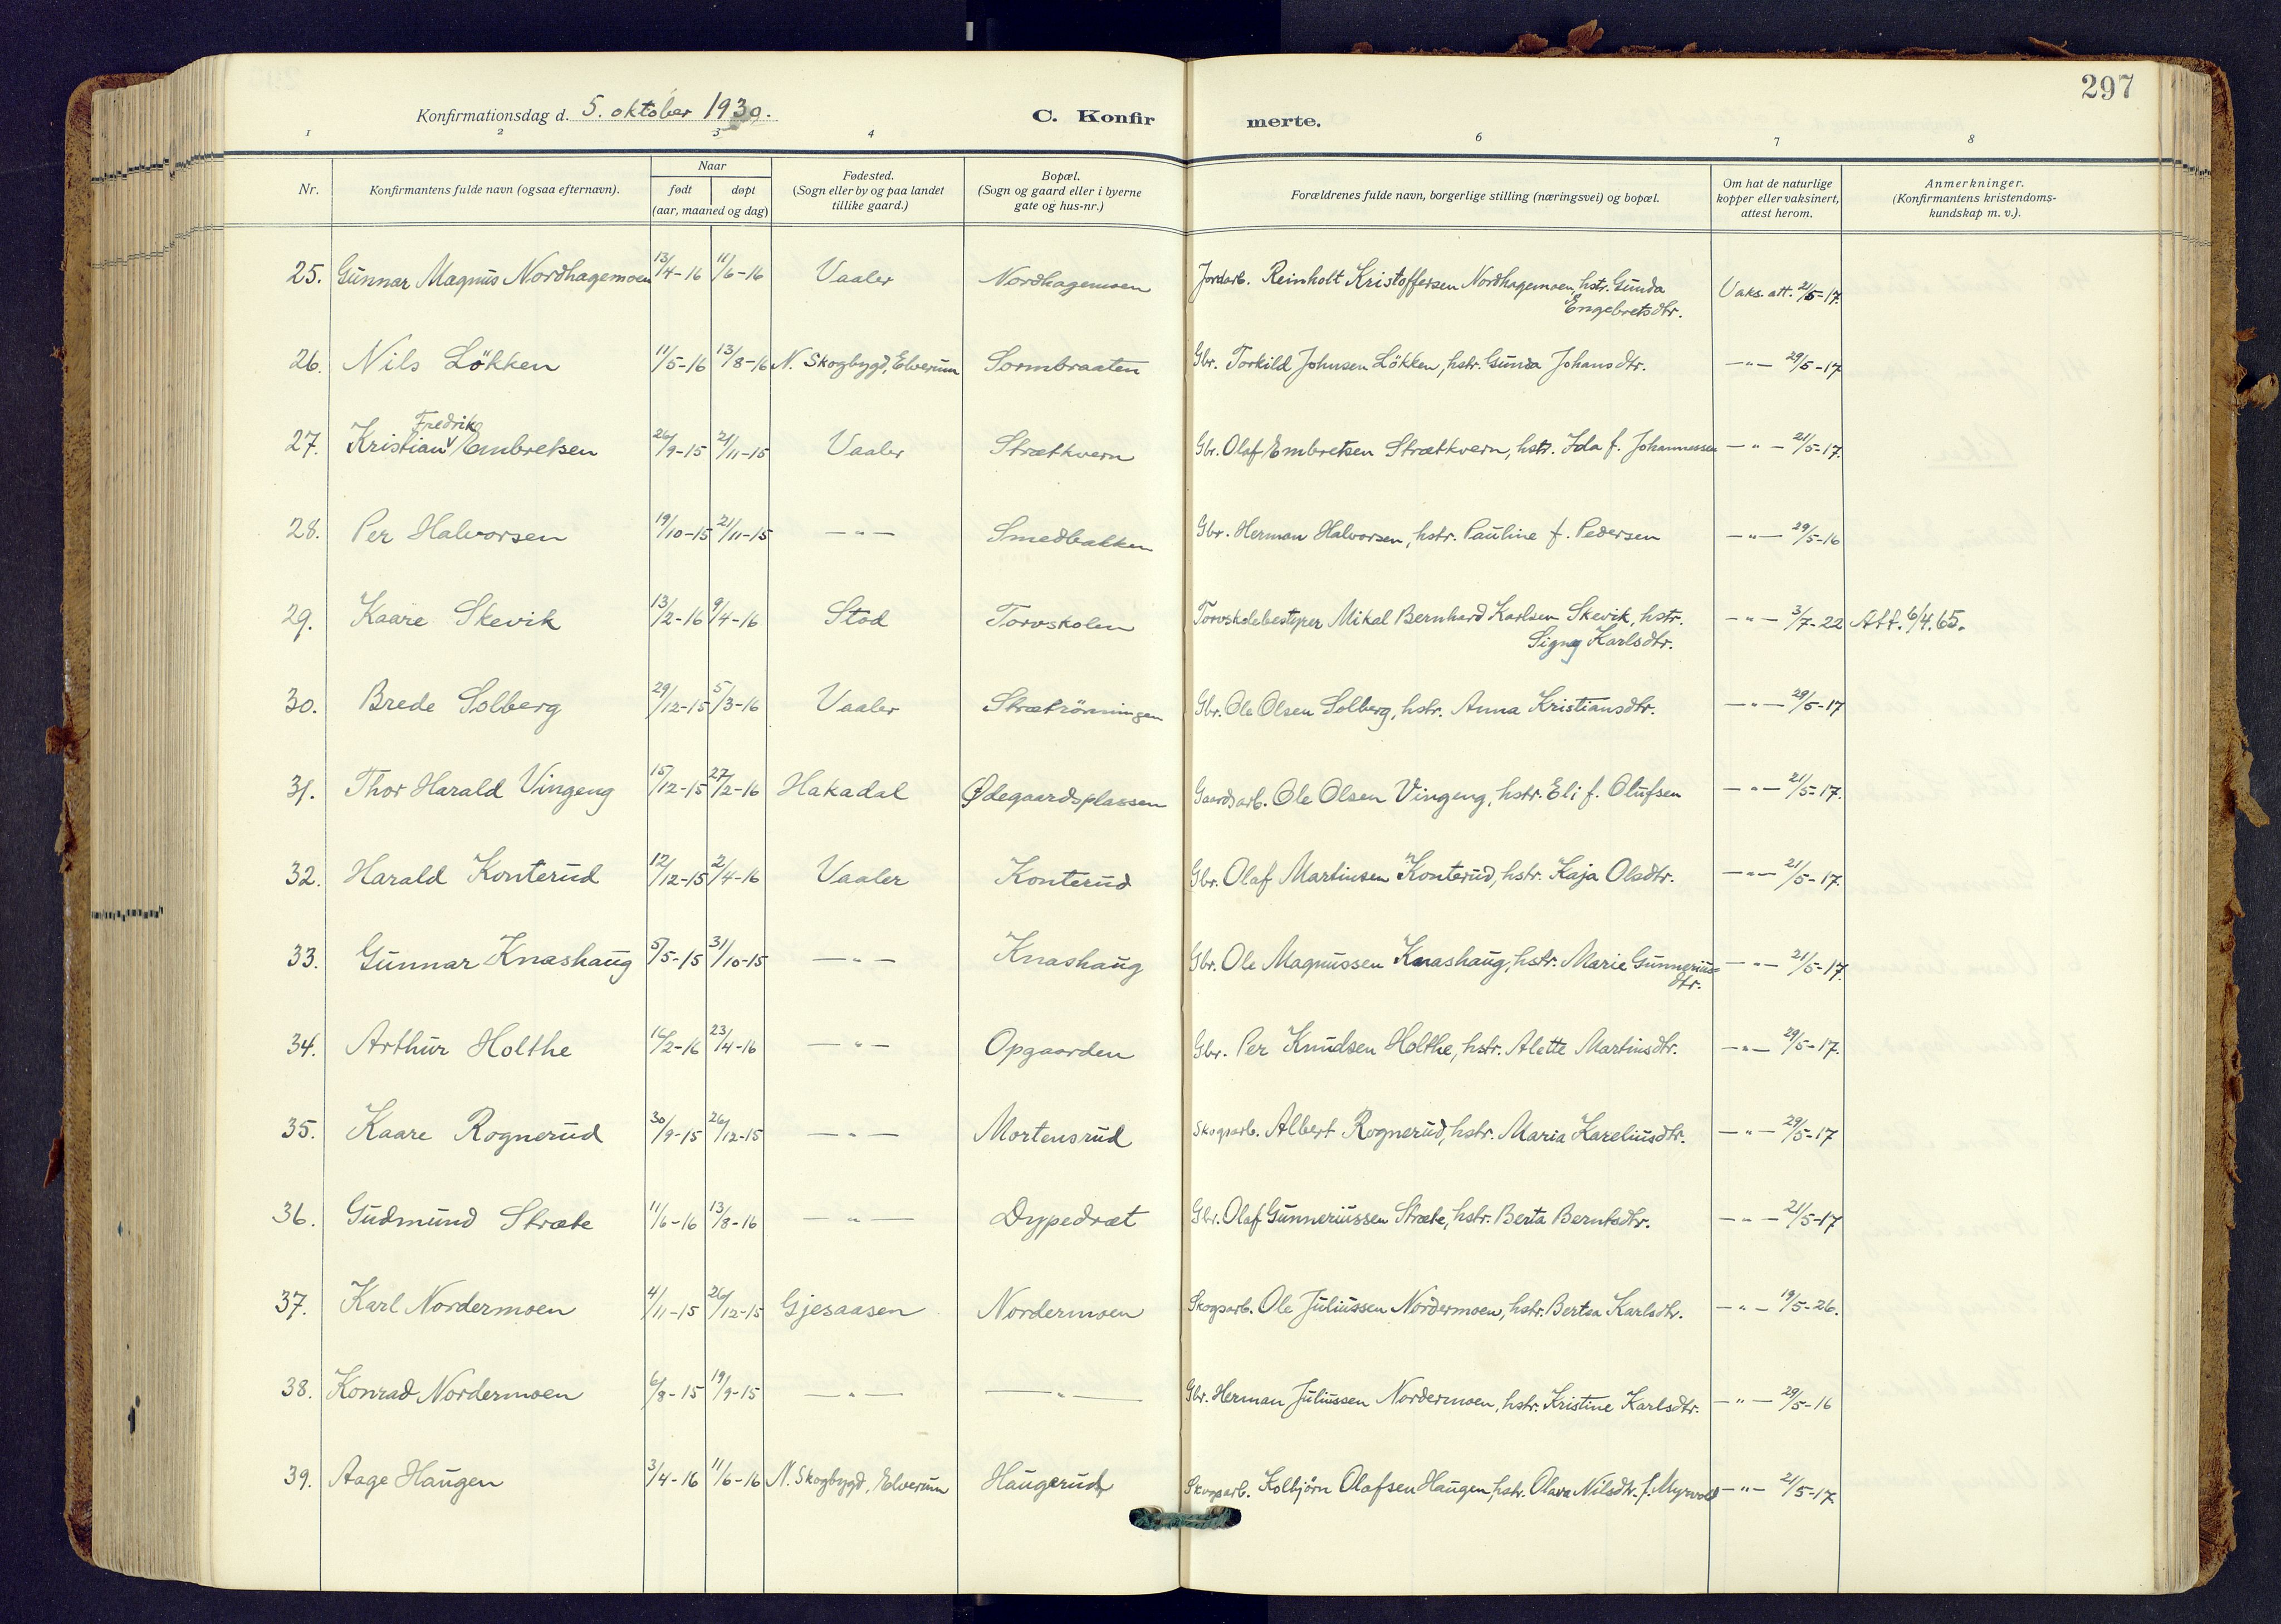 297
Konfirmationsdag d. 5. oktober 1930. C. Konfirmerte.
1 2 3 4 6 7 8
Nr. Konfirmantens fulde navn (ogsaa efternavn). Naar født døpt (aar, maaned og dag) Fødested. (Sogn eller by og paa landet tillike gaard.) Bopæl. (Sogn og gaard eller i byerne gate og hus-nr.) Forældrenes fulde navn, borgerlige stilling (næringsvei) og bopæl. Om hat de naturlige kopper eller vaksinert, attest herom. Anmerkninger. (Konfirmantens kristendoms-kundskap m. v.).
25. Gunnar Magnus Nordhagemoen 13/4-16 11/6-16 Vaaler Nordhagemoen Jordarb. Reinholt Kristoffersen Nordhagemoen, hstr. Gunda Vaks. att. 21/5-17.
Engebretsdtr.
26. Nils Lökken 11/5-16 13/8-16 N. Skogbygd, Elverum Sormbraaten Gbr. Torkild Johnsen Lökken, hstr. Gunda Johansdtr. —"— 29/5-17
Fredrik
27. Kristian v Embretsen 26/9-15 21/11-15 Vaaler Strætkvern Gbr. Olaf Embretsen Strætkvern, hstr. Ida f. Johannessen —"— 21/5-17.
28. Per Halvorsen 19/10-15 21/11-15 —"— Smedbakken Gbr. Herman Halvorsen, hstr. Pauline f. Pedersen —"— 29/5-16
29. Kaare Skevik 13/2-16 9/4-16 Stod Torvskolen Torvskolebestyrer Mikal Bernhard Karlsen Skevik, hstr. —"— 3/7-22 Att. 6/4.65.
Signy Karlsdtr.
30. Brede Solberg 29/12-15 5/3-16 Vaaler Strætrönningen Gbr. Ole Olsen Solberg, hstr. Anna Kristiansdtr. —"— 29/5-17
31. Thor Harald Vingeng 15/12-15 27/2-16 Hakadal Ødegaardsplassen Gaardsarb. Ole Olsen Vingeng, hstr. Eli f. Olufsen —"— 21/5-17.
32. Harald Konterud 12/12-15 2/4-16 Vaaler Konterud Gbr. Olaf Martinsen Konterud, hstr. Kaja Olsdtr. —"— 21/5-17.
33. Gunnar Knashaug 5/5-15 31/10-15 —"— Knashaug Gbr. Ole Magnussen Knashaug, hstr. Marie Gunnerius- —"— 21/5-17.
dtr.
34. Arthur Holthe 16/2-16 23/4-16 —"— Opgaarden Gbr. Per Knudsen Holthe, hstr. Alette Martinsdtr. —"— 29/5-17.
35. Kaare Rognerud 30/9-15 26/12-15 —"— Mortensrud Skogsarb. Albert Rognerud, hstr. Maria Kareliusdtr. —"— 29/5-17
36. Gudmund Stræte 11/6-16 13/8-16 —"— Dypedræt Gbr. Olaf Gunneriussen Stræte, hstr. Berta Berntsdtr. —"— 21/5-17
37. Karl Nordermoen 4/11-15 26/12-15 Gjesaasen Nordermoen Skogsarb. Ole Juliussen Nordermoen, hstr. Bertea Karlsdtr. —"— 19/5-26.
38. Konrad Nordermoen 6/8-15 19/9-15 —"— —"— Gbr. Herman Juliussen Nordermoen, hstr. Kristine Karlsdtr. —"— 29/5-16
39. Aage Haugen 3/4-16 11/6-16 N. Skogbygd, Elverum Haugerud Skogsarb. Kolbjörn Olafsen Haugen, hstr. Olava Nilsdtr. f. Myrvold —"— 21/5-17.